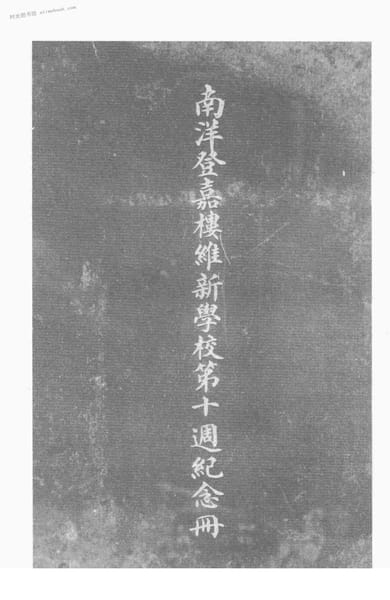 南洋登嘉樓維新學校第十週紀念冊